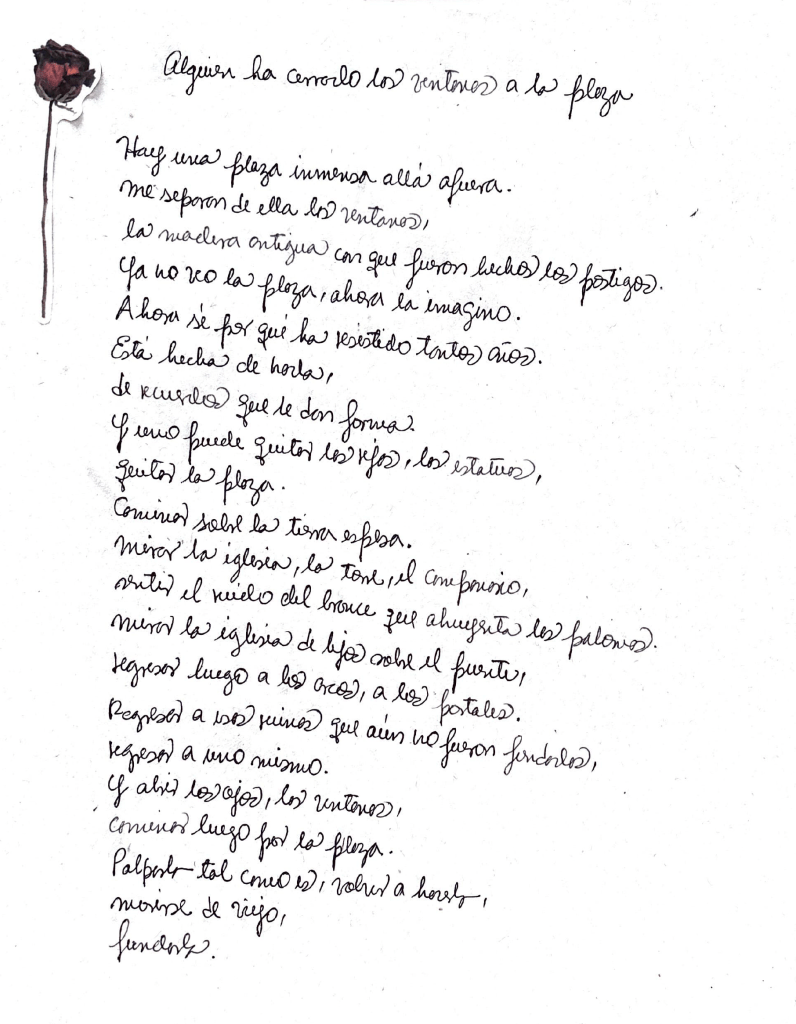 Alguien ha cerrado las ventanas a la plaza
Hay una plaza inmensa allá afuera.
Me separan de ella las ventanas,
la madera antigua con que fueron hechos los postigos.
Ya no veo la plaza, ahora la imagino.
Ahora sé por qué ha resistido tantos años.
Está hecha de nada,
de recuerdos que le dan forma.
Y uno puede quitar las rejas, las estatuas,
quitar la plaza.
Caminar sobre la tierra espesa.
Mirar la iglesia, la torre, el campanario,
sentir el ruido del bronce que ahuyenta las palomas.
Mirar la iglesia de lejos sobre el puente,
regresar luego a los arcos, a los portales.
Regresar a esas ruinas que aún no fueron fundadas,
regresar a uno mismo.
Y abrir los ojos, las ventanas,
caminar luego por la plaza.
Palparla tal como es, volver a hacerla,
morirse de viejo,
fundarla.